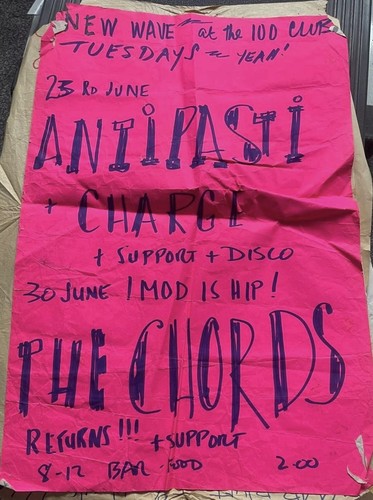 NEW WAVE at the 100 CLUB
TUESDAYS ~ YEAH!
23 RD JUNE
ANTiPASTi
+ CHARGE
+ SUPPORT + DISCO
30 JUNE / MOD IS HIP!
THE CHORDS
RETURNS!!! + SUPPORT
8-12 BAR - FOOD 2.00